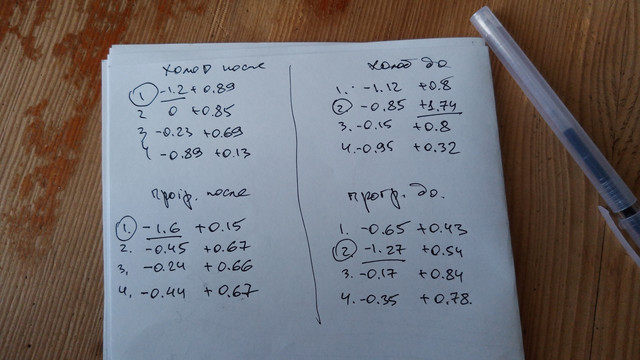 холод после
1 -1.2 +0.89
2 0 +0.85
3 -0.23 +0.69
4 -0.89 +0.13
прогр. после
1. -1.6 +0.15
2. -0.45 +0.67
3, -0.24 +0.66
4. -0.44 +0.67
холод до.
1. -1.12 +0.8
2 -0.85 +1.74
3. -0.15 +0.8
4. -0.95 +0.32
прогр. до.
1. -0.65 +0.43
2. -1.27 +0.54
3. -0.17 +0.84
4. -0.35 +0.78.